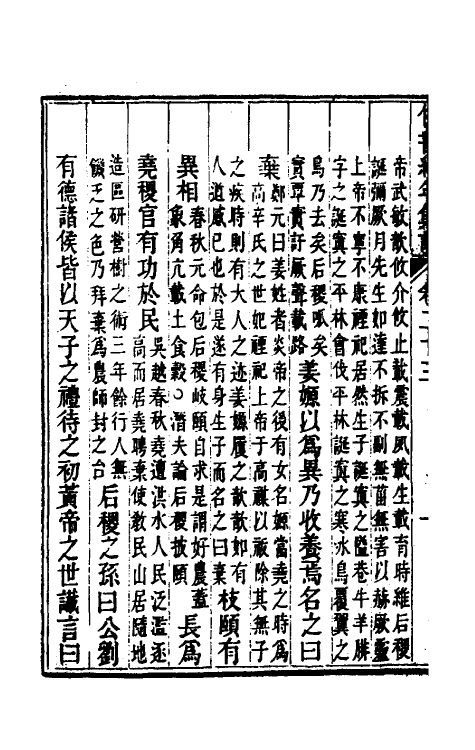 卷二十三 一
帝武敏歆攸介攸止載震載夙載生載育時維后稷
誕彌厥月先生如達不拆不副無菑無害以赫厥靈
上帝不寧不康禋祀居然生子誕寘之隘巷牛羊腓
字之誕寘之平林會伐平林誕寘之寒冰鳥覆翼之
鳥乃去矣后稷呱矣
實覃實訏厥聲載路
姜嫄以爲異乃收養焉名之曰
棄
鄭元曰姜姓者炎帝之後有女名嫄當堯之時爲
高辛氏之世妃禋祀上帝于高禖以祓除其無子
之疾時則有大人之迹姜嫄履之歆歆如有
人道感已也於是遂有身生子而名之曰棄
枝頤有
異相
春秋元命包后稷岐頤自求是謂好農蓋
象角亢載土食穀○潛夫論后稷披頤
長爲
堯稷官有功於民
吳越春秋堯遭洪水人民泛濫逐
高而居堯聘棄使敎民山居隨地
造區研營樹之術三年餘行人無
饑乏之色乃拜棄爲農師封之台
后稷之孫曰公劉
有德諸侯皆以天子之禮待之初黃帝之世讖言曰